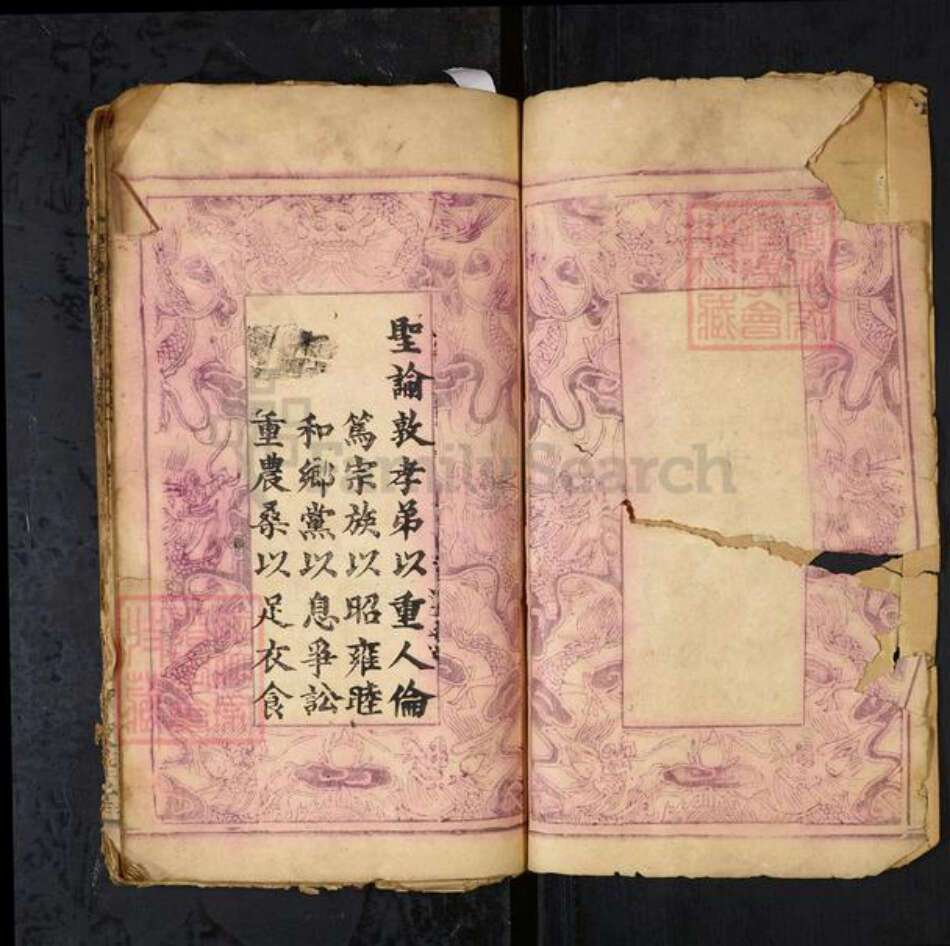 聖諭敦孝弟以重人倫
篤宗族以昭雍睦
和鄉黨以息爭訟
重農桑以足衣食
FamilySearch